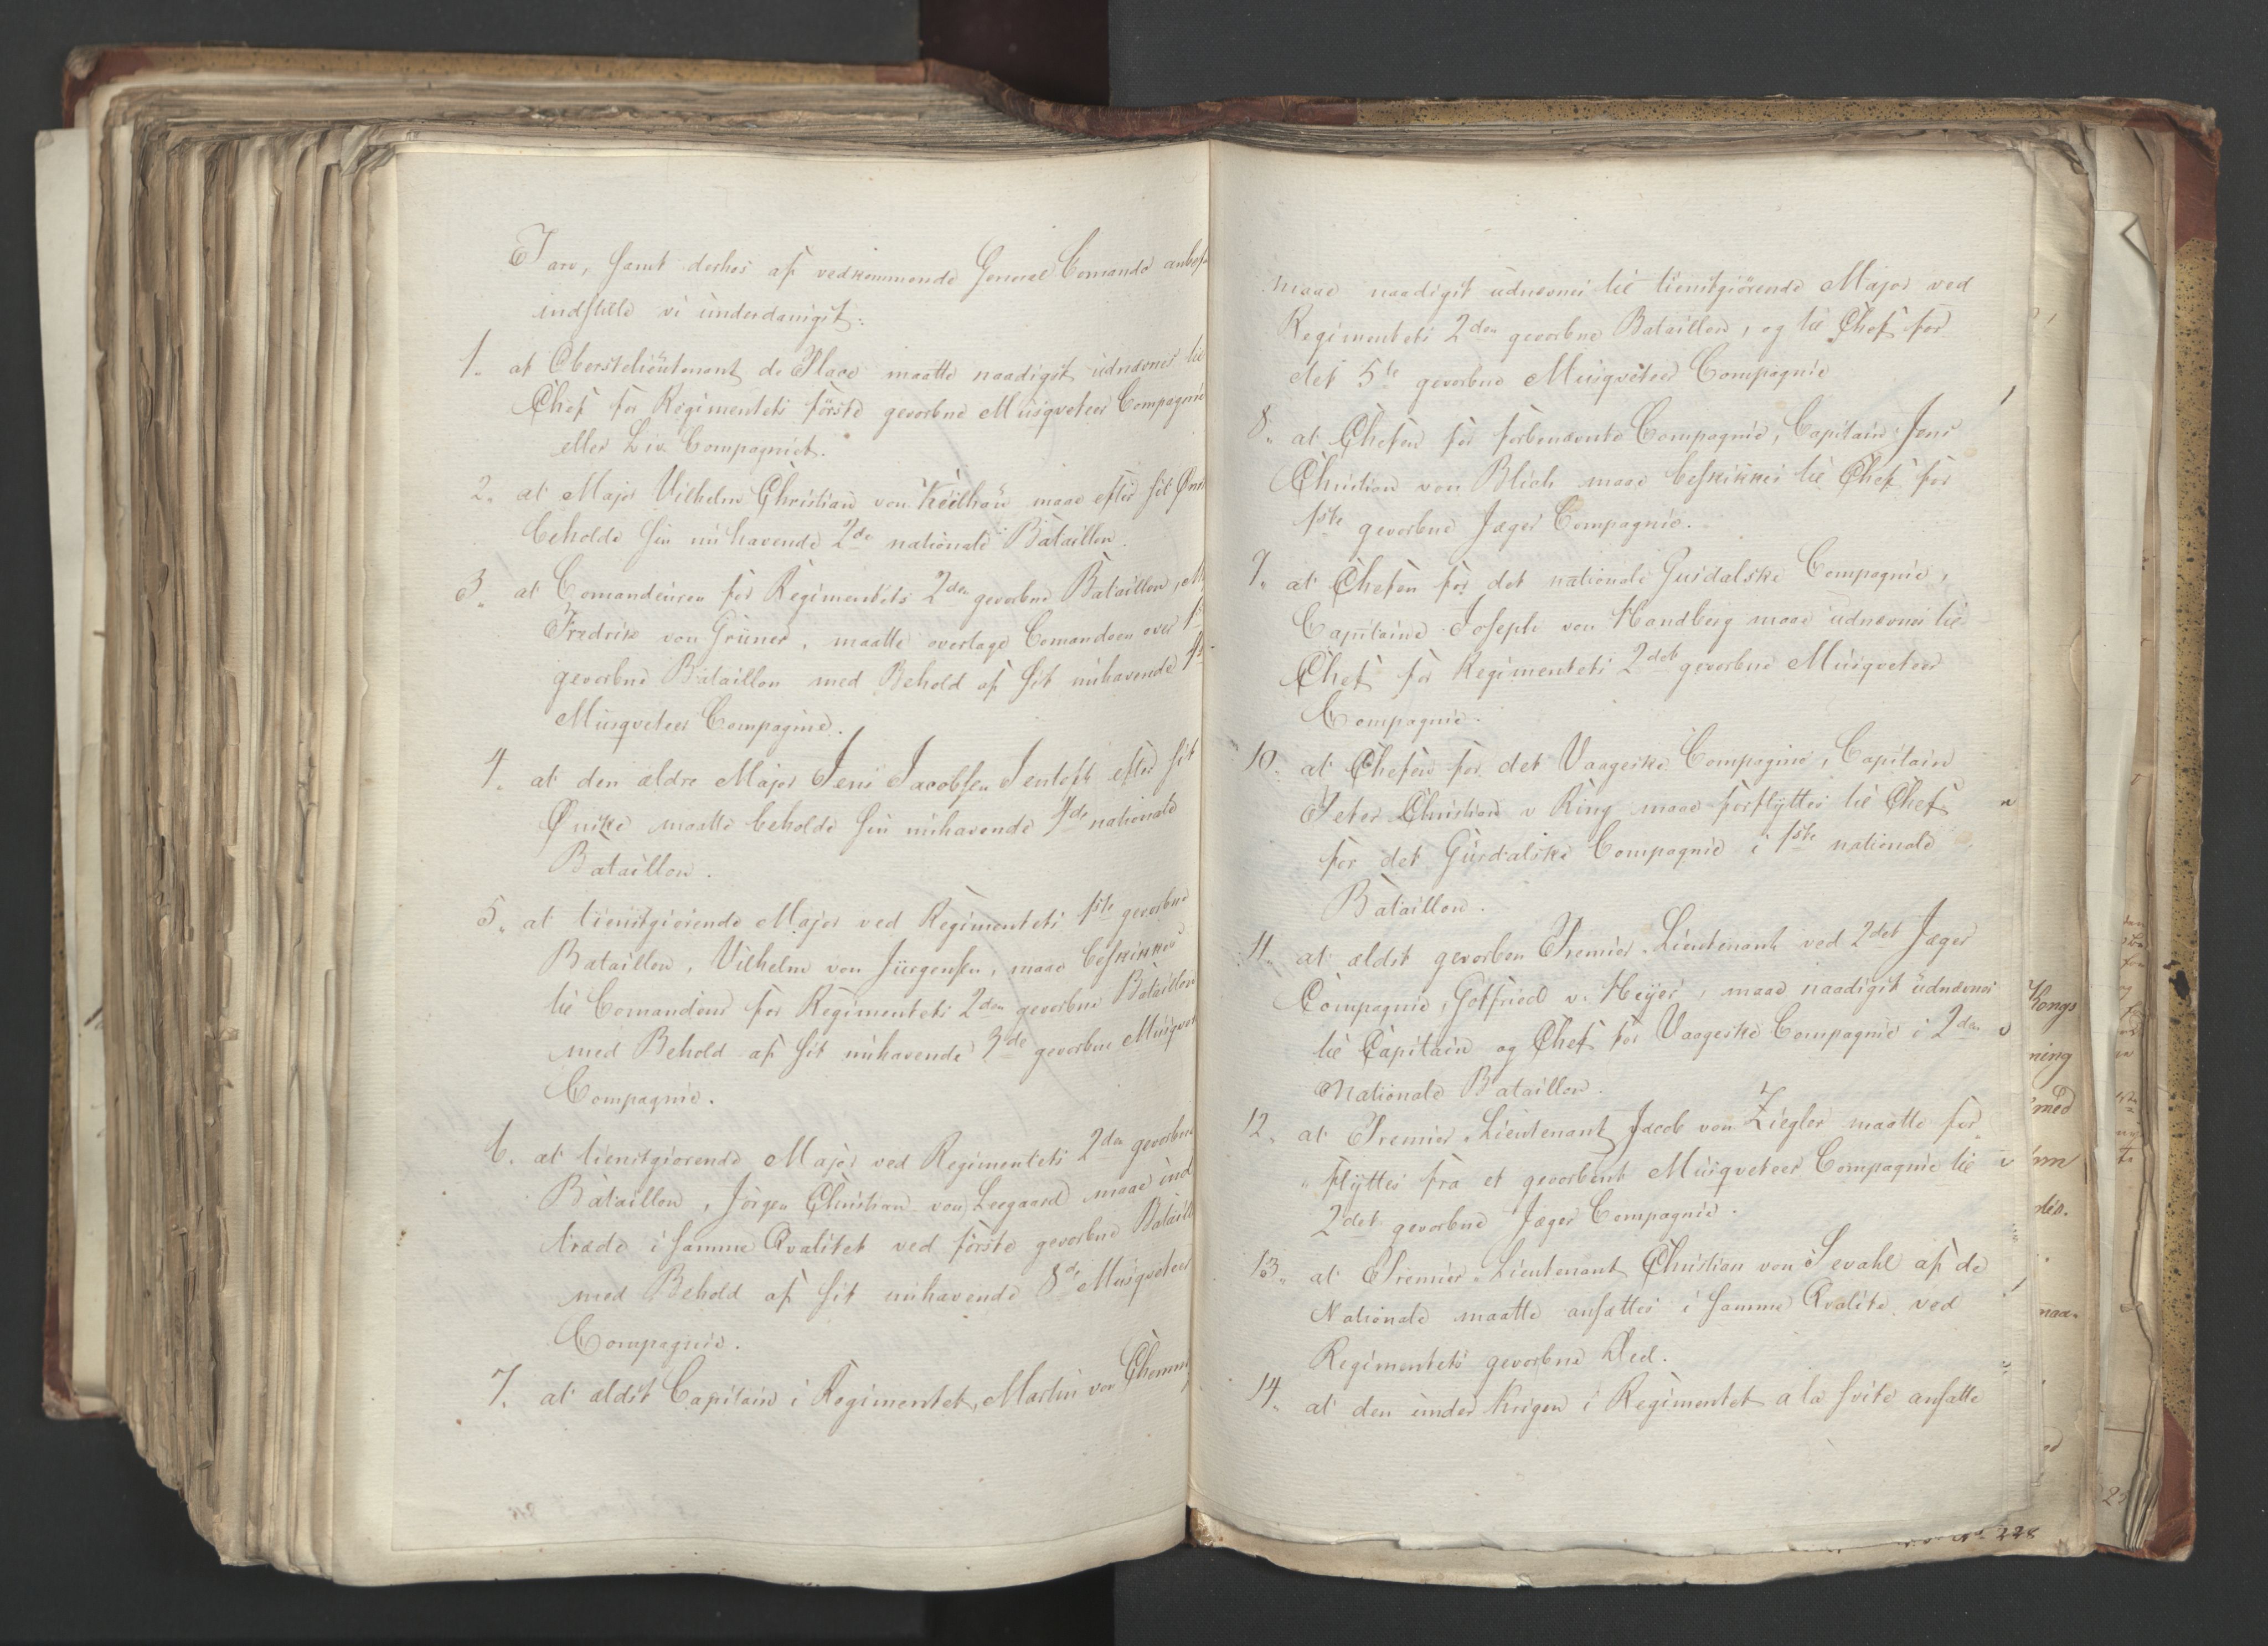 Tare, samt derhos af vedkommende General Comando anbef
indstille vi underdanigst:
1. at Oberstelieutenant de Place maatte naadigst udnævnes til
Chef for Regimentets förste gevorbne Musqveteer Compagnie
eller Liv Compagniet.
2. at Major Vilhelm Christian von Keilhau maae efter sit Önsk
beholde sin nu havende 2de nationale Bataillon.
3. at Comandeuren for Regimentets 2den gevorbne Bataillon, M
Fredrik von Grüner, maatte overtage Comandoen over 1st
gevorbne Bataillon med Behold af sit nuhavende 4de
Musqveteer Compagnie.
4. at den ældre Major Jens Jacobsen Jentoft efter sit
Önske maatte beholde sin nuhavende 4de nationale
Bataillon.
5. at tienstgiörende Major ved Regimentets 1ste gevorbne
Bataillon, Vilhelm von Jürgensen, maae beskikkes
til Comandeur for Regimentets 2den gevorbne Bataillon
med Behold af sit nuhavende 3de gevorbne Musqvet
Compagnie.
6. at tienstgiörende Major ved Regimentets 2den gevorbne
Bataillon, Jörgen Christian von Leegaard maae ind
træde i samme Qvalitet ved förste gevorbne Bataill
med Behold af sit nuhavende 8de Musqveteer
Compagnie.
7. at ældst Capitain i Regimentet, Martin von
maae naadigst udnævnes til tienstgiörende Major ved
Regimentets 2den gevorbne Bataillon, og til Chef for
det 5te gevorbne Musqveteer Compagnie
8. at Chefen for forbenævnte Compagnie, Capitain Jens
Christian von Blich maae beskikkes til Chef for
1ste gevorbne Jæger Compagnie.
9. at Chefen for det nationale Guisdalske Compagnie,
Capitaine Joseph von Handberg maae udnævnes til
Chef for Regimentets 2det gevorbne Musqveteer
Compagnie.
10. at Chefen for det Vaageske Compagnie, Capitain
Peter Christian v Ring maae forflyttes til Chef
for det Gusdalske Compagnie i 1ste nationale
Bataillon.
11. at ældst gevorben Premier Lieutenant ved 2det Jæger
Compagnie, Gotfried v. Heyer, maae naadigst udnævnes
til Capitain og Chef for Vaageske Compagnie i 2den
Nationale Bataillon.
12. at Premier Lieutenant Jacob von Ziegler maatte for
flyttes fra et gevorbent Musqveteer Compagnie til
2det gevorbne Jæger Compagnie.
13. at Premier Lieutenant Christian von Sevahl af de
Nationale maatte ansættes i samme Qvalite ved
Regimentets gevorbne Deel.
14. at den under Krigen i Regimentet a la svite ansatte
Kongs
ning
med
naa-
228